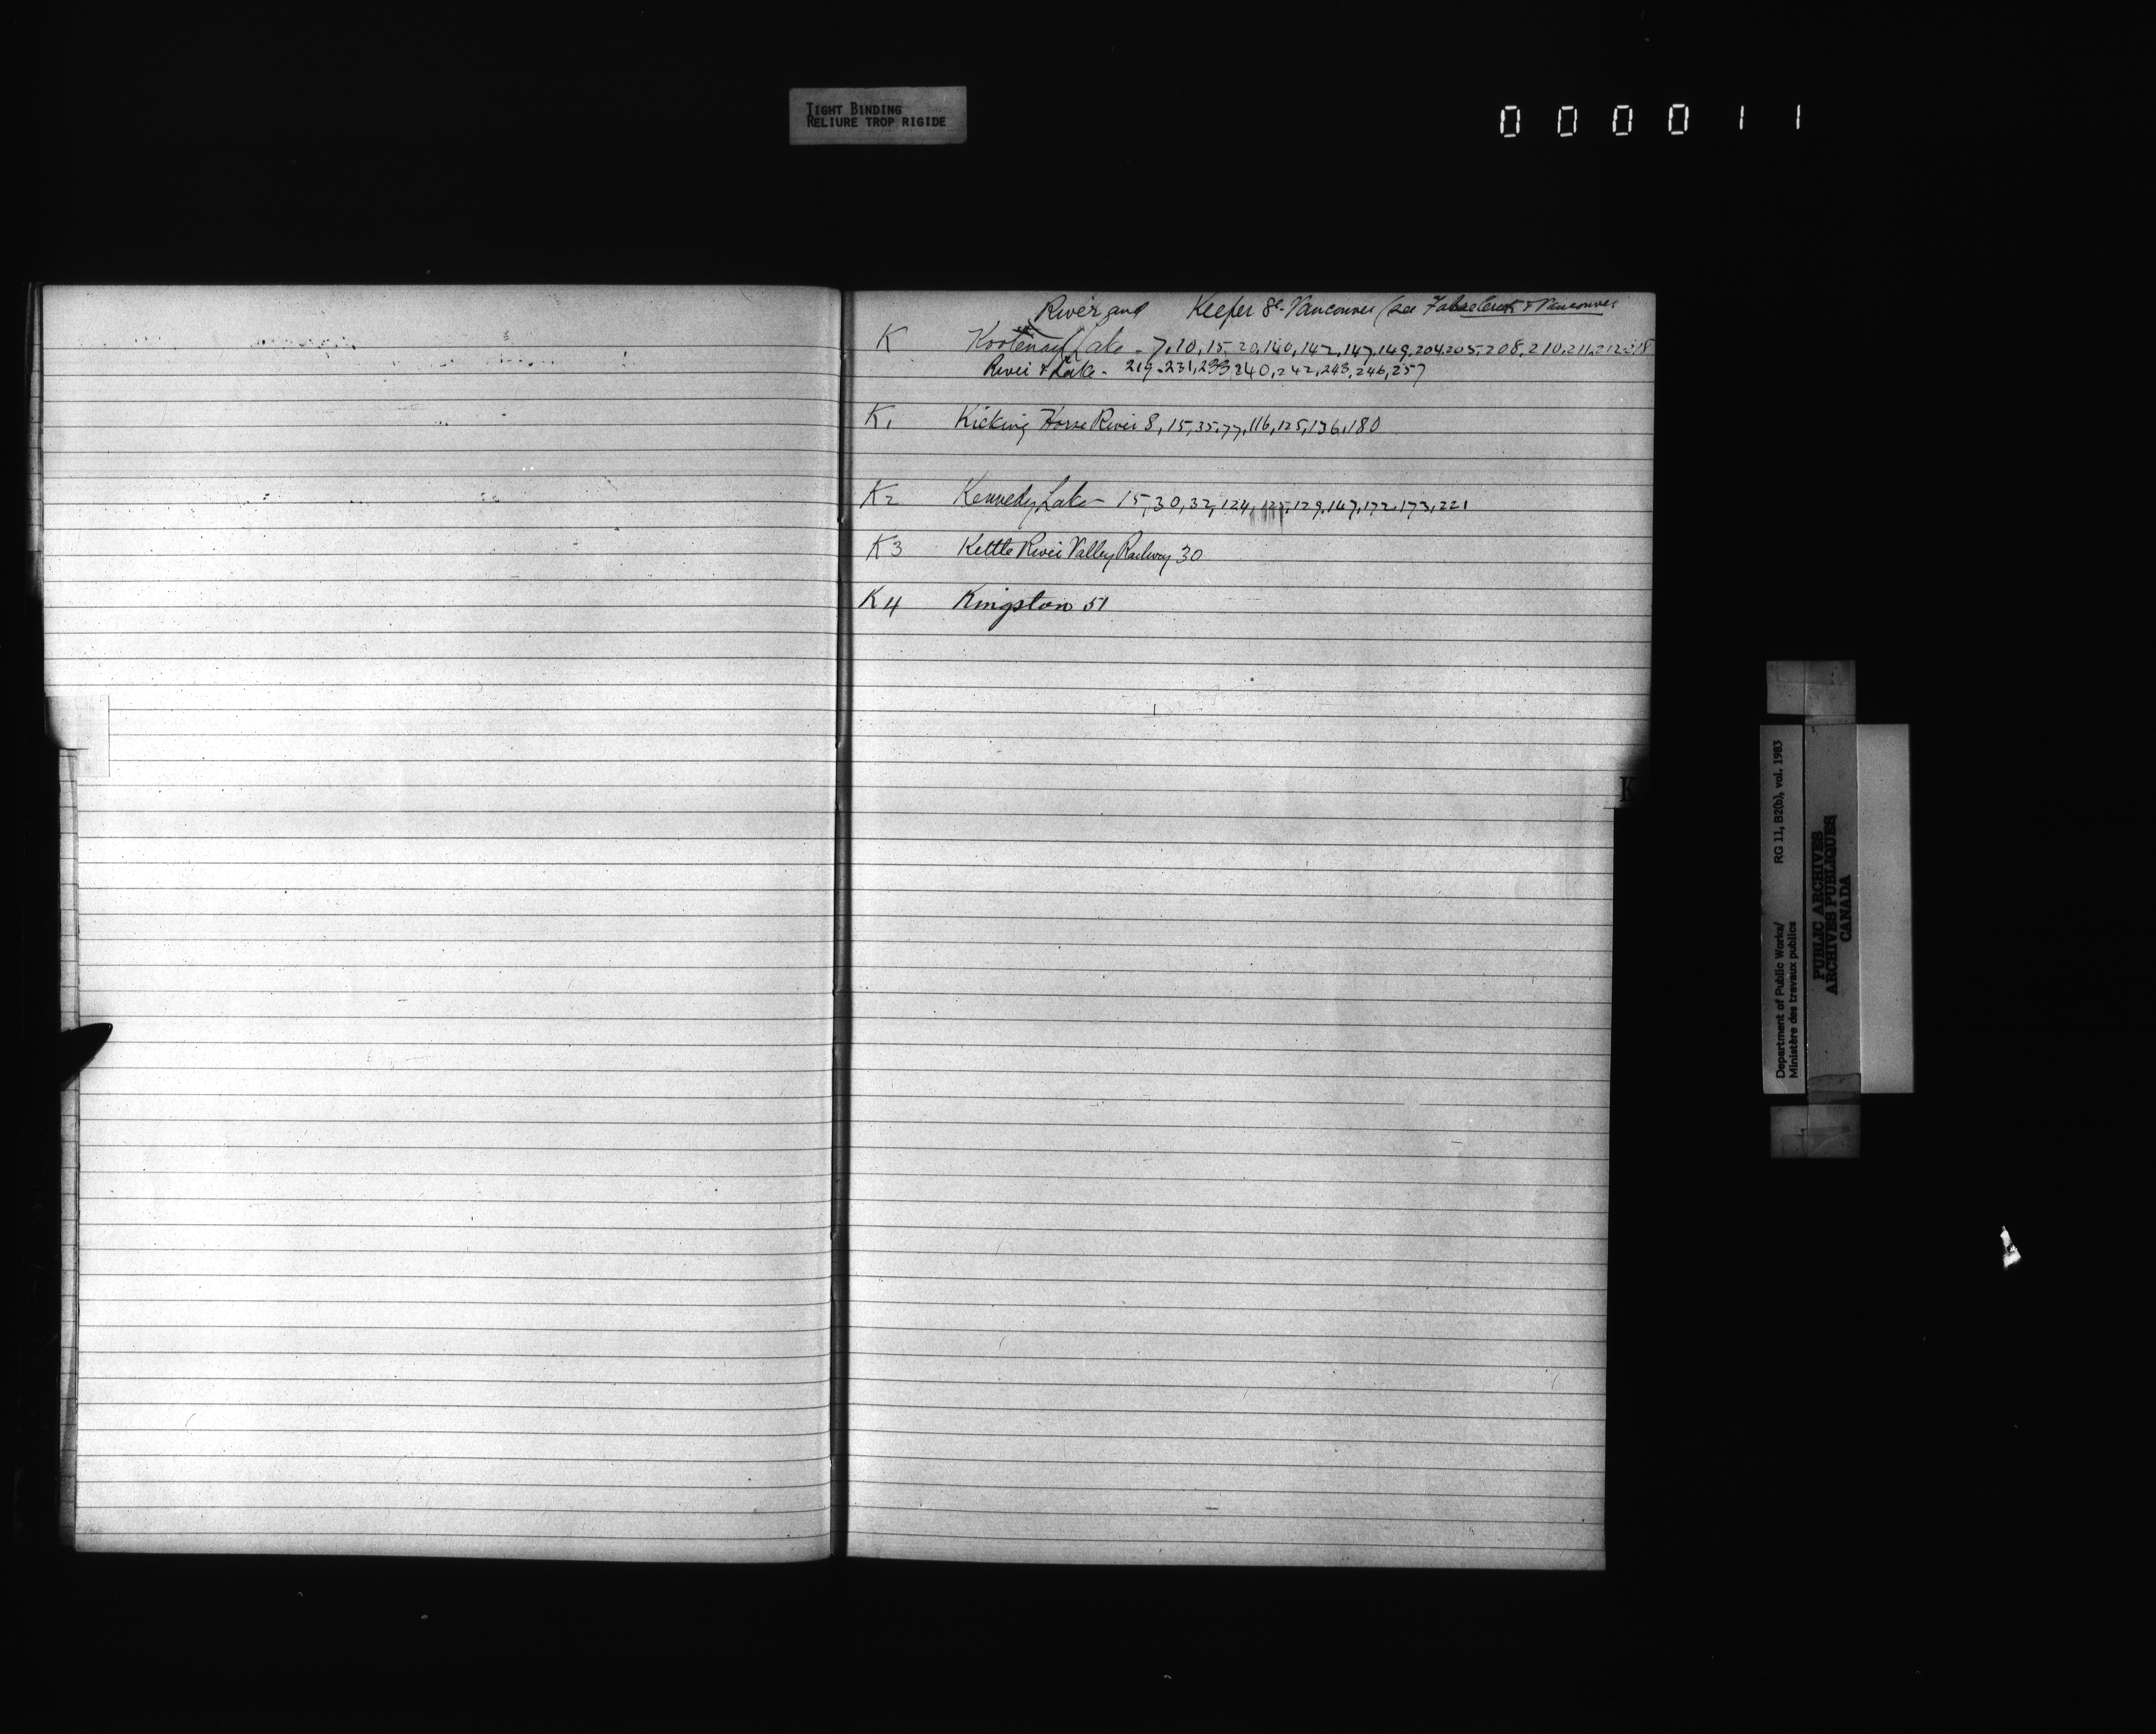 TIGHT BINDING
RELIURE TROP RIGIDE
000011
River and Keefer St. Vancouver (see False Creek & Vancouver
K Kootenay Lake - 7, 10, 15, 20, 140, 142, 147, 149, 204, 205, 208, 210, 211, 212, 218
River & Lake - 219, 231, 233, 240, 242, 243, 246, 257
K1 Kicking Horse River 8, 15, 35, 77, 116, 125, 136, 180
K2 Kennedy Lake - 15, 30, 32, 124, 125, 129, 147, 172, 173, 221
K3 Kettle River Valley Railway 30
K4 Kingston 51
K
Department of Public Works/ RG 11, B2(b), vol. 1983
Ministère des travaux publics
PUBLIC ARCHIVES
ARCHIVES PUBLIQUES
CANADA